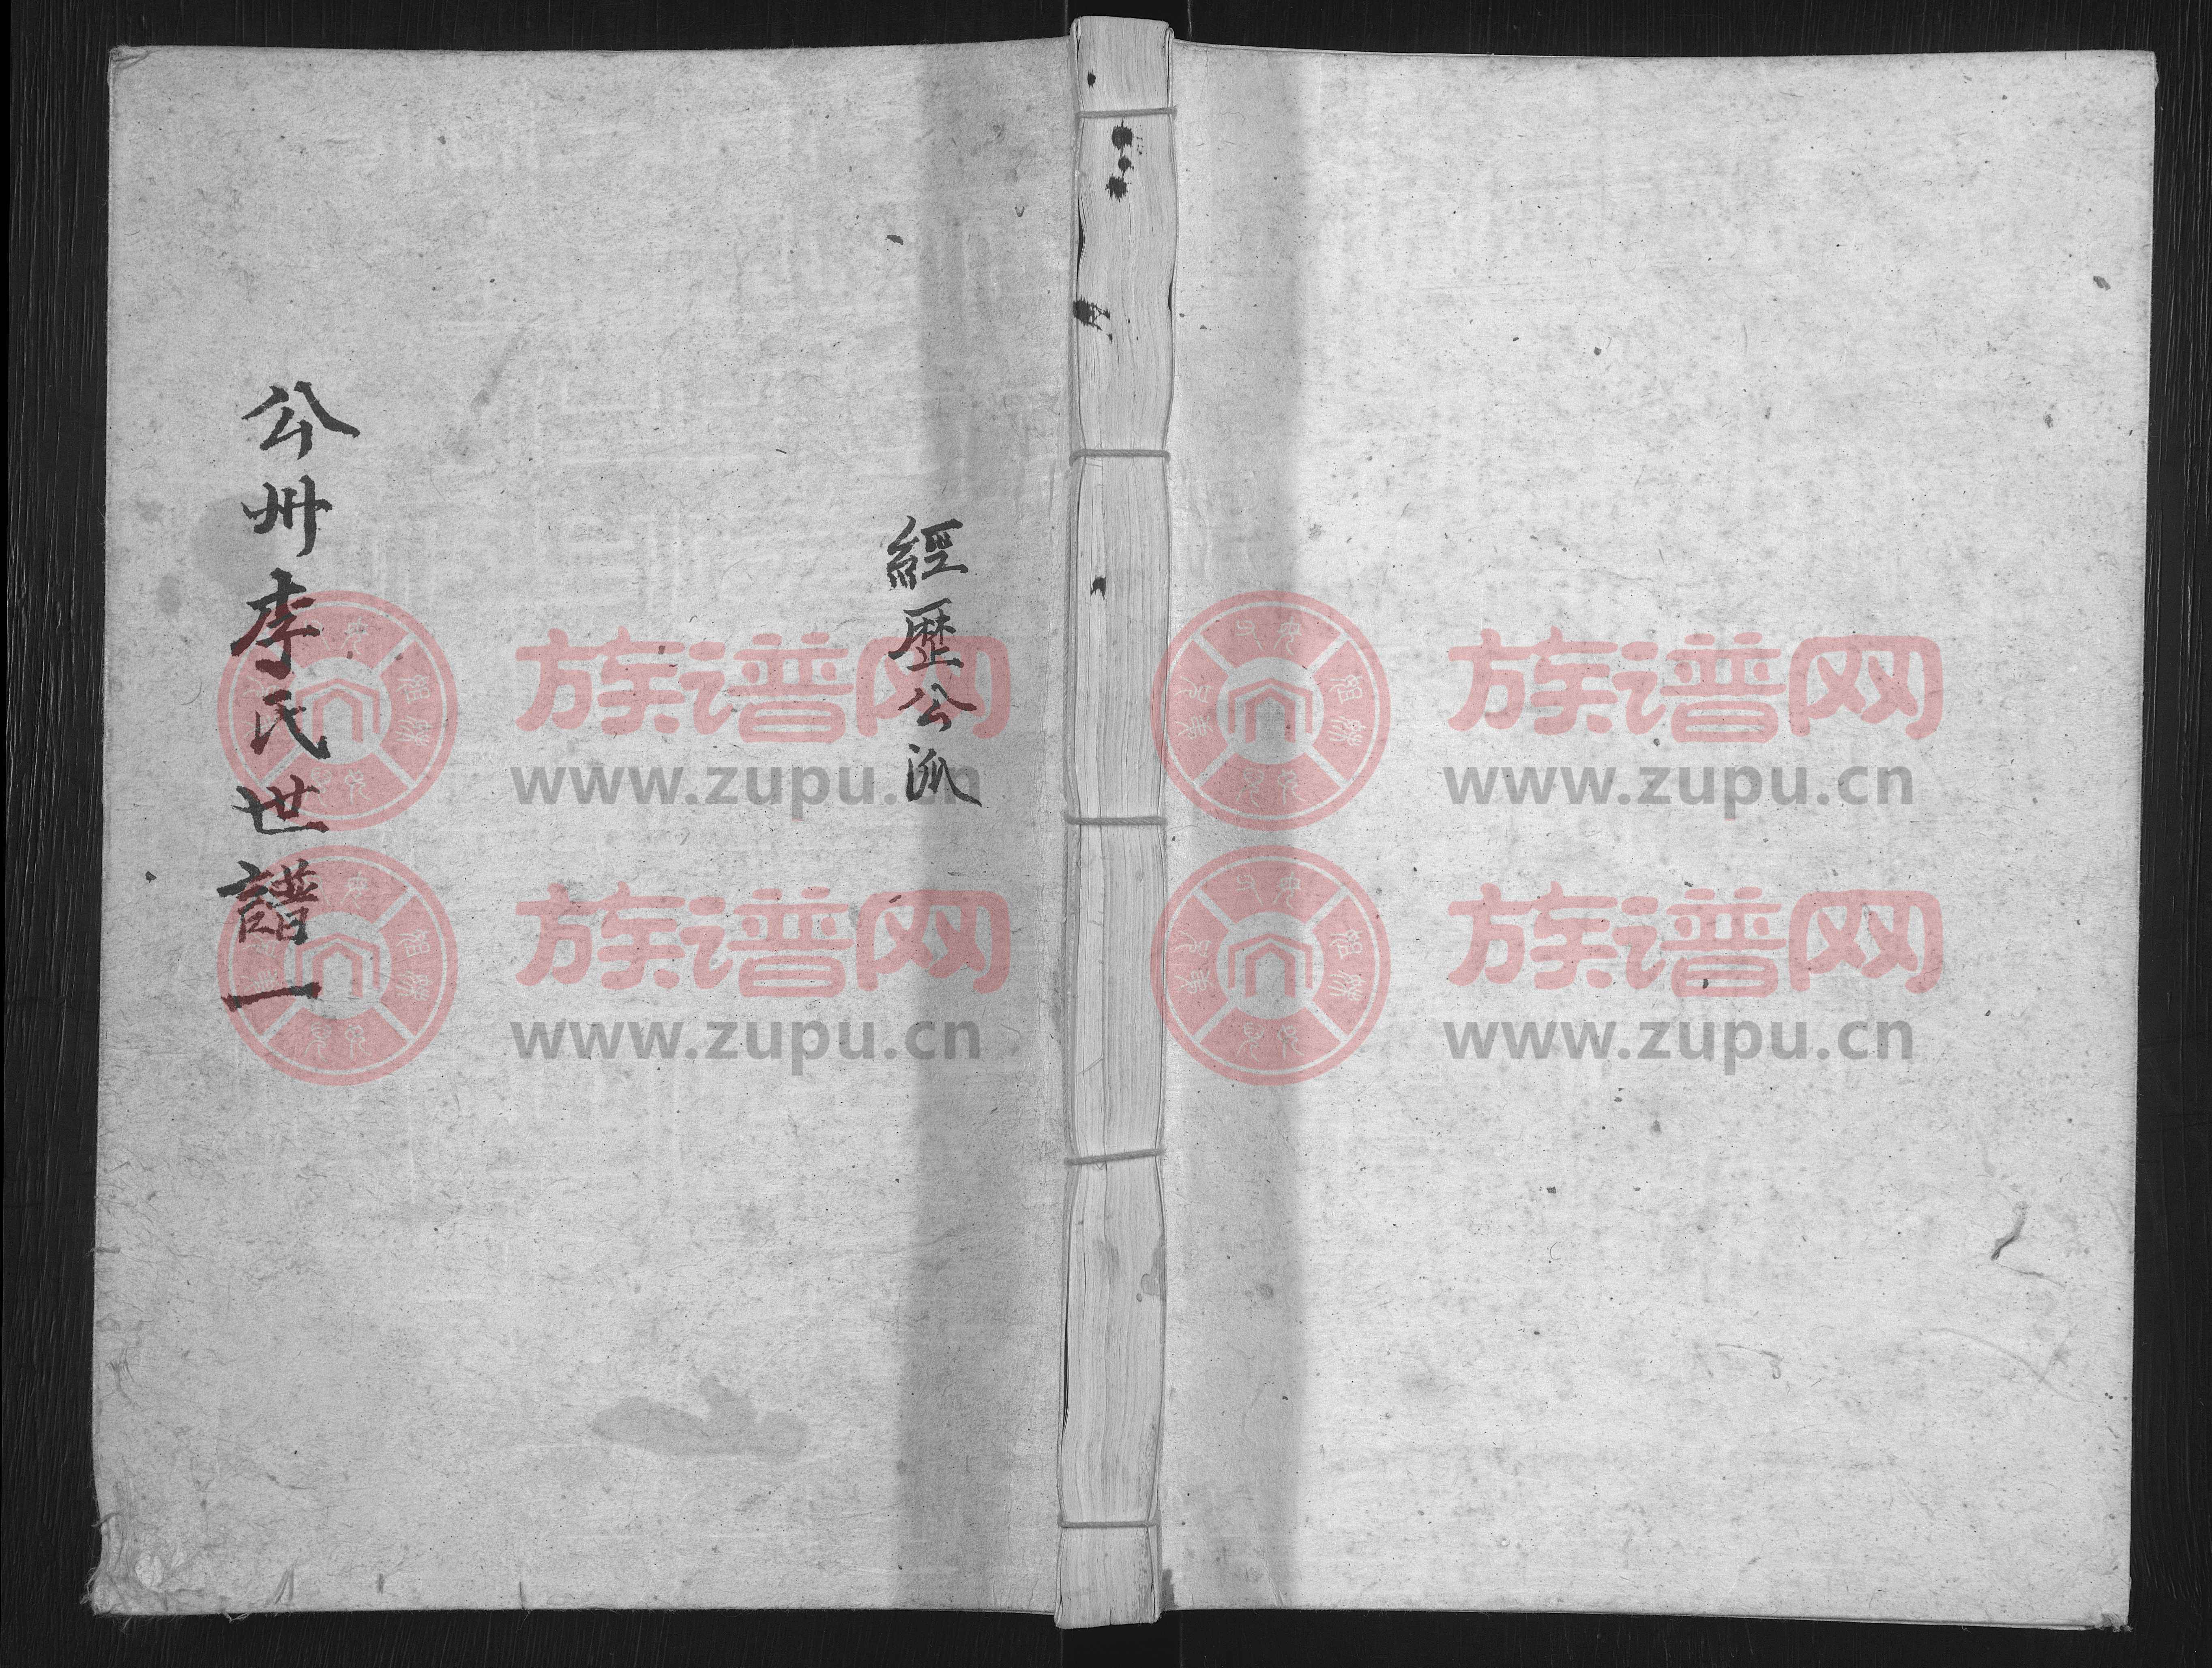 公州李氏世譜一
經歷公派
族谱网
www.zupu.cn
族谱网
www.zupu.cn
族谱网
www.zupu.cn
族谱网
www.zupu.cn